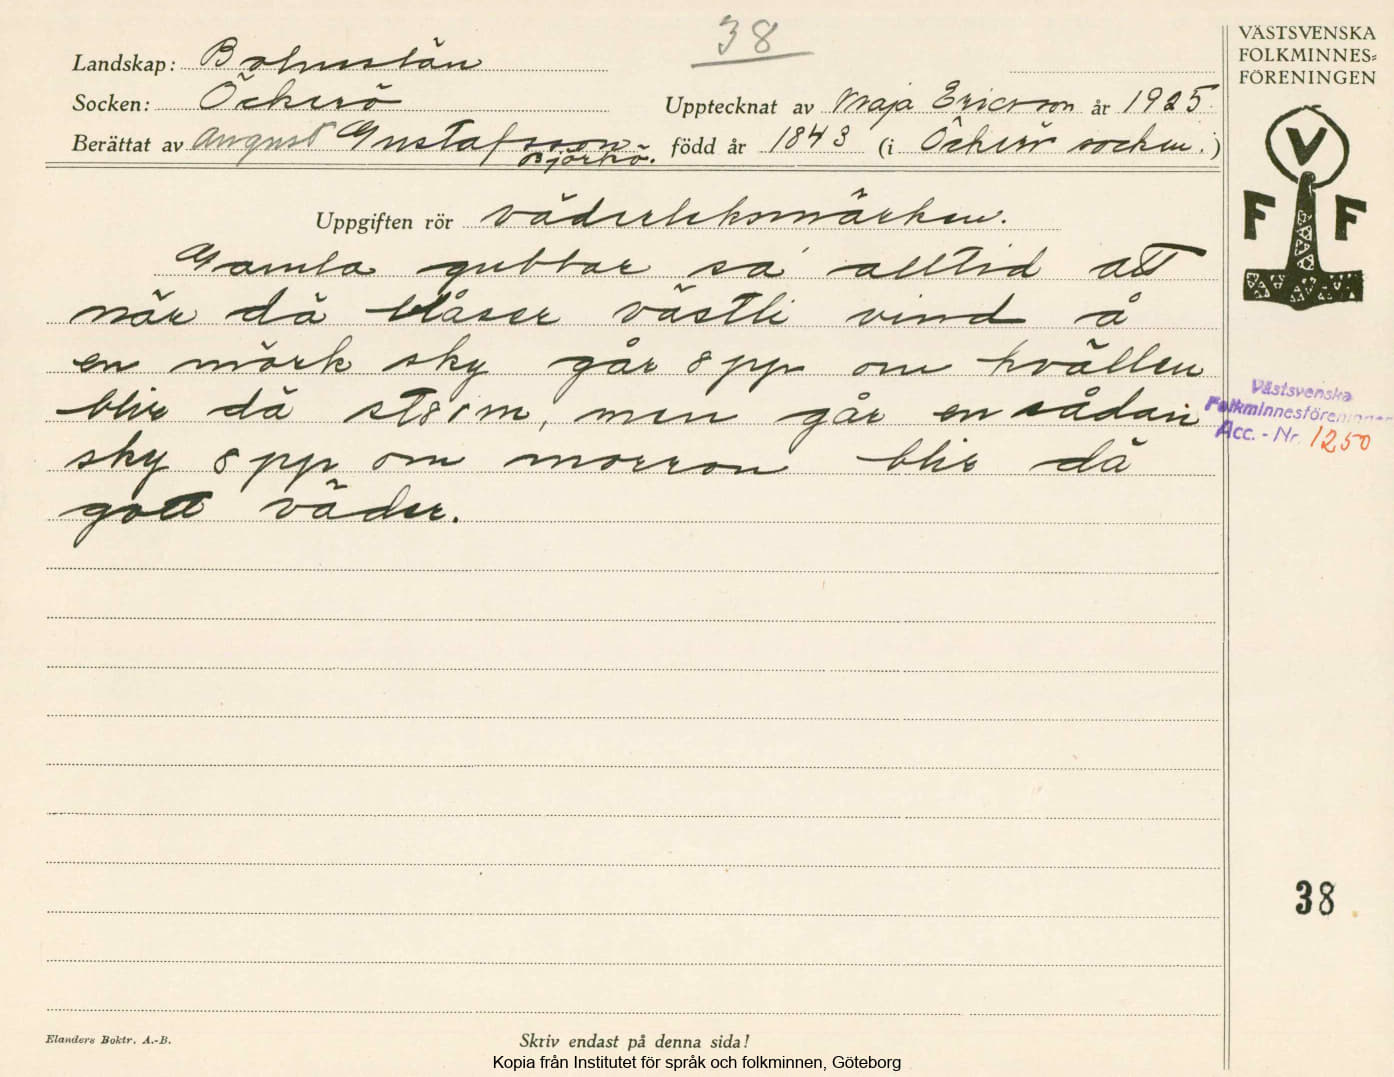 38
Landskap: Bohuslän
Socken: Öckerö
Upptecknat av Maja Ericsson år 1925
Berättat av August Gustafsson
Björkö.
född år 1843 (i Öckerö socken.)
Uppgiften rör väderleksmärken.
Gamla gubbar sa alltid att
när dä blåser västli vind å
en mörk sky går opp om kvällen
blir dä storm, men går en sådan
sky opp om morron blir dä
gott väder.
VÄSTSVENSKA
FOLKMINNES=
FÖRENINGEN
V
F F
Västsvenska
Folkminnesföreningen
Acc. - Nr. 1250
38
Elanders Boktr. A.-B.
Skriv endast på denna sida!
Kopia från Institutet för språk och folkminnen, Göteborg